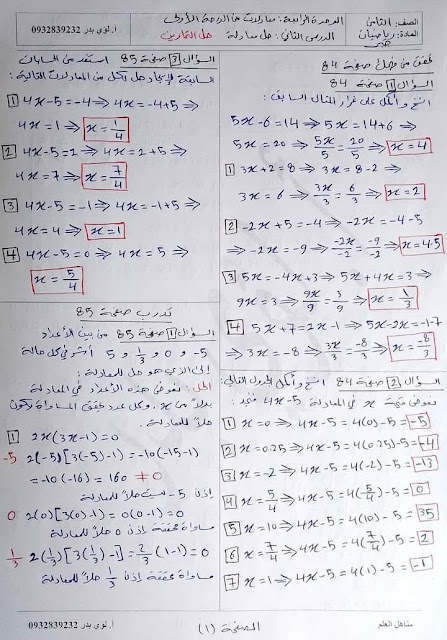 الصف: الثامن
المادة: رياضيات
جبر
الوحدة الرابعة: معادلات من الدرجة الأولى
الدرس الثاني: حل معادلة حل التمارين
أ. لؤي بدر 0932839232
تحقق من فهمك صفحة 84
السؤال 1 صفحة 84
انسخ وأكمل على غرار المثال السابق:
5x-6=14 ⇒ 5x=14+6 ⇒
5x=20 ⇒ 5x/5=20/5 ⇒ x=4
1 3x+2=8 ⇒ 3x=8-2 ⇒
3x=6 ⇒ 3x/3=6/3 ⇒ x=2
2 -2x+5=-4 ⇒ -2x=-4-5
⇒ -2x=-9 ⇒ -2x/-2=-9/-2 ⇒ x=4.5
3 5x=-4x+3 ⇒ 5x+4x=3 ⇒
9x=3 ⇒ 9x/9=3/9 ⇒ x=1/3
4 5x+7=2x-1 ⇒ 5x-2x=-1-7
⇒ 3x=-8 ⇒ 3x/3=-8/3 ⇒ x=-8/3
السؤال 2 صفحة 84 انسخ وأكمل الجدول التالي:
نعوض قيمة x في المعادلة 4x-5 فنجد:
1 x=0 ⇒ 4x-5=4(0)-5=-5
2 x=0.25 ⇒ 4x-5=4(0.25)-5=-4
3 x=-2 ⇒ 4x-5=4(-2)-5=-13
4 x=5/4 ⇒ 4x-5=4(5/4)-5=0
5 x=10 ⇒ 4x-5=4(10)-5=35
6 x=7/4 ⇒ 4x-5=4(7/4)-5=2
7 x=1 ⇒ 4x-5=4(1)-5=-1
السؤال 3 صفحة 85 استفد من الحسابات
السابقة لإيجاد حل لكل من المعادلات التالية:
1 4x-5=-4 ⇒ 4x=-4+5 ⇒
4x=1 ⇒ x=1/4
2 4x-5=2 ⇒ 4x=2+5 ⇒
4x=7 ⇒ x=7/4
3 4x-5=-1 ⇒ 4x=-1+5 ⇒
4x=4 ⇒ x=1
4 4x-5=0 ⇒ 4x=5 ⇒
x=5/4
تدرب صفحة 85
السؤال 1 صفحة 85 من بين الأعداد
-5 و 0 و 1/3 و 5 أشر في كل حالة
إلى الذي هو حل للمعادلة:
الحل: نعوض هذه الأعداد في المعادلة
بدلاً من x، وكل عدد يحقق المساواة يكون
حلاً للمعادلة.
1 2x(3x-1)=0
-5 2(-5)[3(-5)-1]=-10(-15-1)
=-10(-16)=160≠0
إذن -5 ليست حلاً للمعادلة
0 2(0)[3(0)-1]=0(0-1)=0
مساواة محققة إذن 0 حلاً للمعادلة
1/3 2(1/3)[3(1/3)-1]=2/3(1-1)=0
مساواة محققة إذن 1/3 حلاً للمعادلة
أ. لؤي بدر 0932839232
الصفحة (1)
مناهل العلم